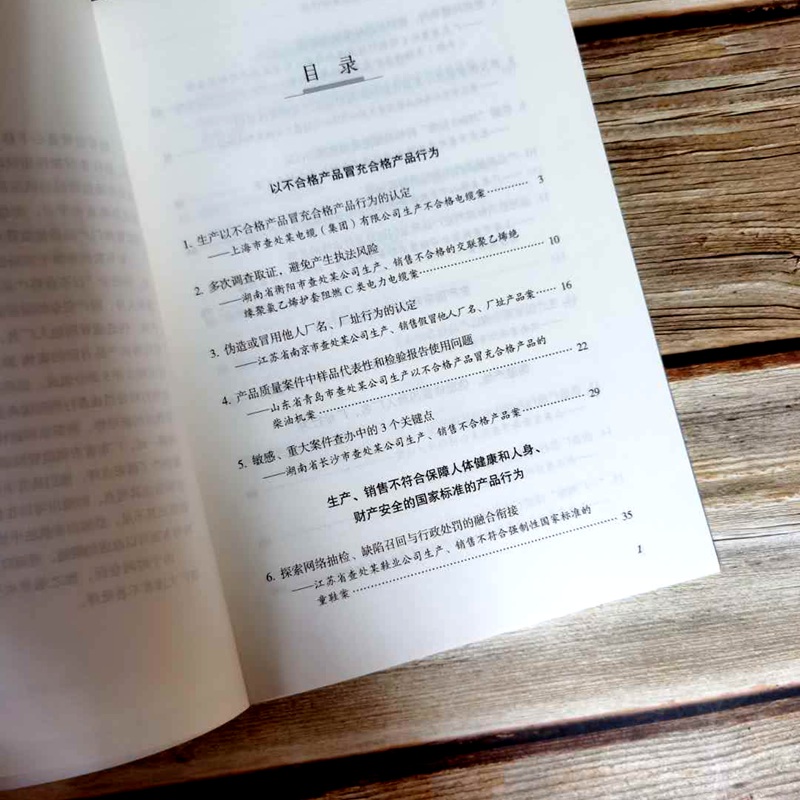 目 录
以不合格产品冒充合格产品行为
1. 生产以不合格产品冒充合格产品行为的认定
——上海市查处某电缆（集团）有限公司生产不合格电缆案………… 3
2. 多次调查取证，避免产生执法风险
——湖南省衡阳市查处某公司生产、销售不合格的交联聚乙烯绝
缘聚氯乙烯护套阻燃 C 类电力电缆案………… 10
3. 伪造或冒用他人厂名、厂址行为的认定
——江苏省南京市查处某公司生产、销售假冒他人厂名、厂址产品案…… 16
4. 产品质量案件中样品代表性和检验报告使用问题
——山东省青岛市查处某公司生产以不合格产品冒充合格产品的
柴油机案………… 22
5. 敏感、重大案件查办中的 3 个关键点
——湖南省长沙市查处某公司生产、销售不合格产品案………… 29
生产、销售不符合保障人体健康和人身、
财产安全的国家标准的产品行为
6. 探索网络抽检、缺陷召回与行政处罚的融合衔接
——江苏省查处某鞋业公司生产、销售不符合强制性国家标准的
童鞋案………… 35
1